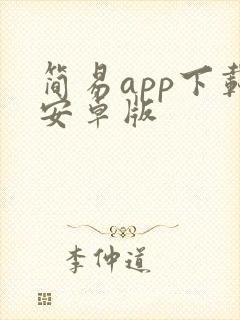 简易app下载
安卓版
李仲道